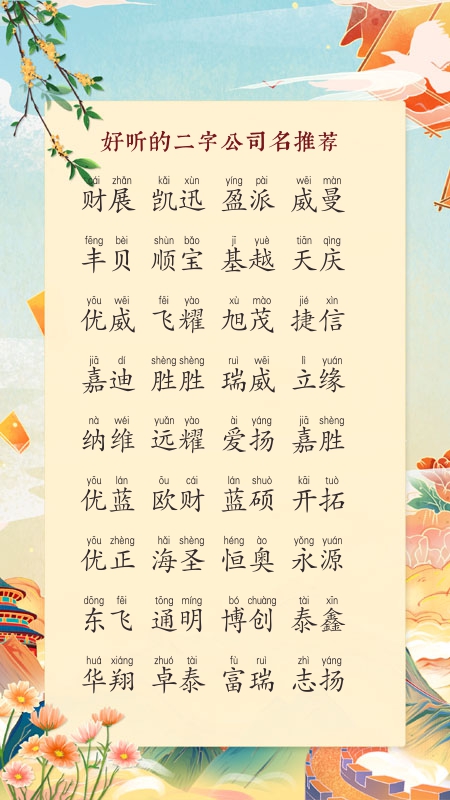 好听的二字公司名推荐
cái zhǎn kǎi xùn yíng pài wēi màn
财展 凯迅 盈派 威曼
fēng bèi shùn bǎo jī yuè tiān qìng
丰贝 顺宝 基越 天庆
yōu wēi fēi yào xù mào jié xìn
优威 飞耀 旭茂 捷信
jiā dí shèng shèng ruì wēi lì yuán
嘉迪 胜胜 瑞威 立缘
nà wéi yuǎn yào ài yáng jiā shèng
纳维 远耀 爱扬 嘉胜
yōu lán ōu cái lán shuò kāi tuò
优蓝 欧财 蓝硕 开拓
yōu zhèng hǎi shèng héng ào yǒng yuán
优正 海圣 恒奥 永源
dōng fēi tōng míng bó chuàng tài xīn
东飞 通明 博创 泰鑫
huá xiáng zhuó tài fù ruì zhì yáng
华翔 卓泰 富瑞 志扬